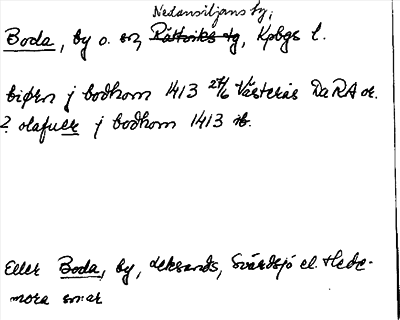 Nedansiljans by;
Boda, by o. sn, Rättviks tg, Kpbgs l.
biørn j bodhom 1413 27/6 Västerås DaRA or.
? olafuer j bodhom 1413 ib.
Eller Boda, by, Leksands, Svärdsjö el. Hede-
mora snar